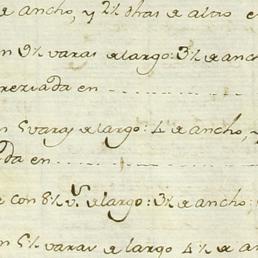 de ancho, y 2½ dhas de alto
n 9½ varas de largo: 3½ de anc
preziada en
n 5 varas de largo: 4 de ancho, y
da en
con 8½ v.s de largo: 3½ de ancho:
n 5½ varas de largo 4½ de an